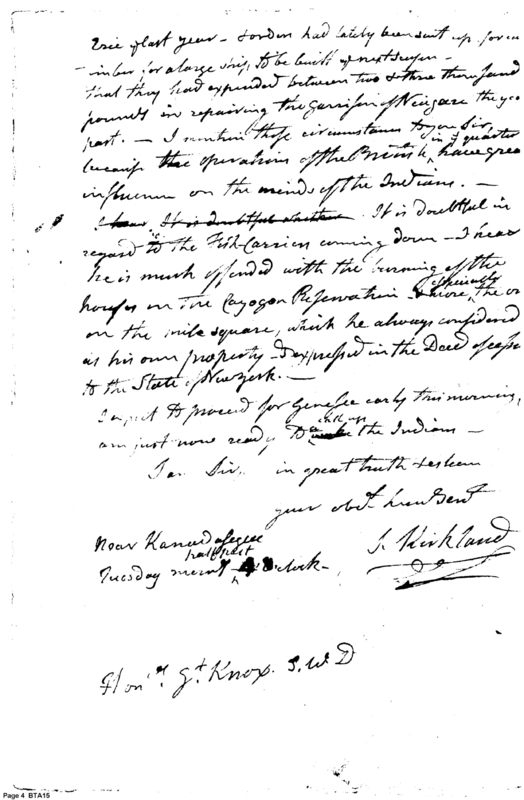 Erie of last year – & orders had lately been sent up for
-imber for a large ship, to be built of next season –
that they had expended between two & three thousand
pounds in repairing the garrison of Neigare the
past. – I mention these circumstances to you Sir,
because the operations of the British, in quarter have grea
influence on the minds of the Indians. –
I hear, It is doubtful whether It is doubtful in
regard to the Fish-Carrier coming down – I hear
he is much offended with the burning of the
houses on the Cayogon Reservation & more especially, the
on the mile square, which he always considered
as his own property – & expressed in the Deed of cess
to the State of Newyork. –
I expect to proceed for Genesee early this morning,
am just now ready to call up the Indians –
I am Sir in great truth & esteem
your obt. hum Servt
S. Kirkland
Near Kanadasegee
Tuesday morng half past 4 o'clock –
Honl. Gl. Knox. S. W. D
Page 4 BTA15